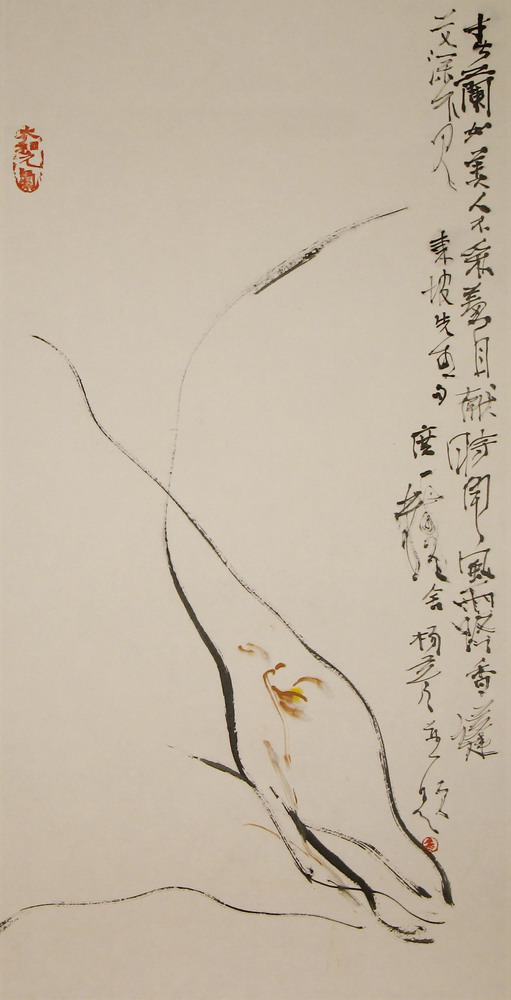 春蘭如美人不采羞自献時聞風露香蓬
艾深不見
東坡先生句
舍 楊 並題